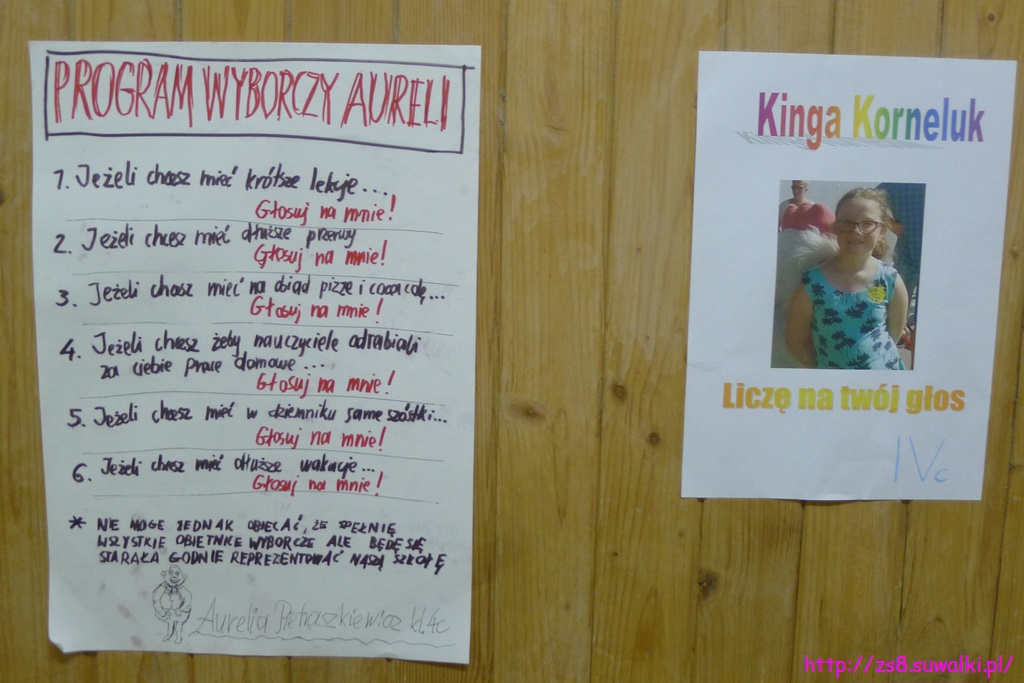 PROGRAM WYBORCZY AURELI
1. Jeżeli chcesz mieć krótsze lekcje...
Głosuj na mnie!
2. Jeżeli chcesz mieć dłuższe przerwy
Głosuj na mnie!
3. Jeżeli chcesz mieć na obiad pizzę i coca colę...
Głosuj na mnie!
4. Jeżeli chcesz żeby nauczyciele odrabiali
za ciebie prace domowe...
Głosuj na mnie!
5. Jeżeli chcesz mieć w dzienniku same szóstki...
Głosuj na mnie!
6. Jeżeli chcesz mieć dłuższe wakacje...
Głosuj na mnie!
* NIE MOGĘ JEDNAK OBIECAĆ, ŻE SPEŁNIĘ
WSZYSTKIE OBIETNICE WYBORCZE ALE BĘDĘ SIĘ
STARAŁA GODNIE REPREZENTOWAĆ NASZĄ SZKOŁĘ
Aurelia Pietraszkiewicz kl. 4c
Kinga Korneluk
Liczę na twój głos
IVc
http://zs8.suwalki.pl/